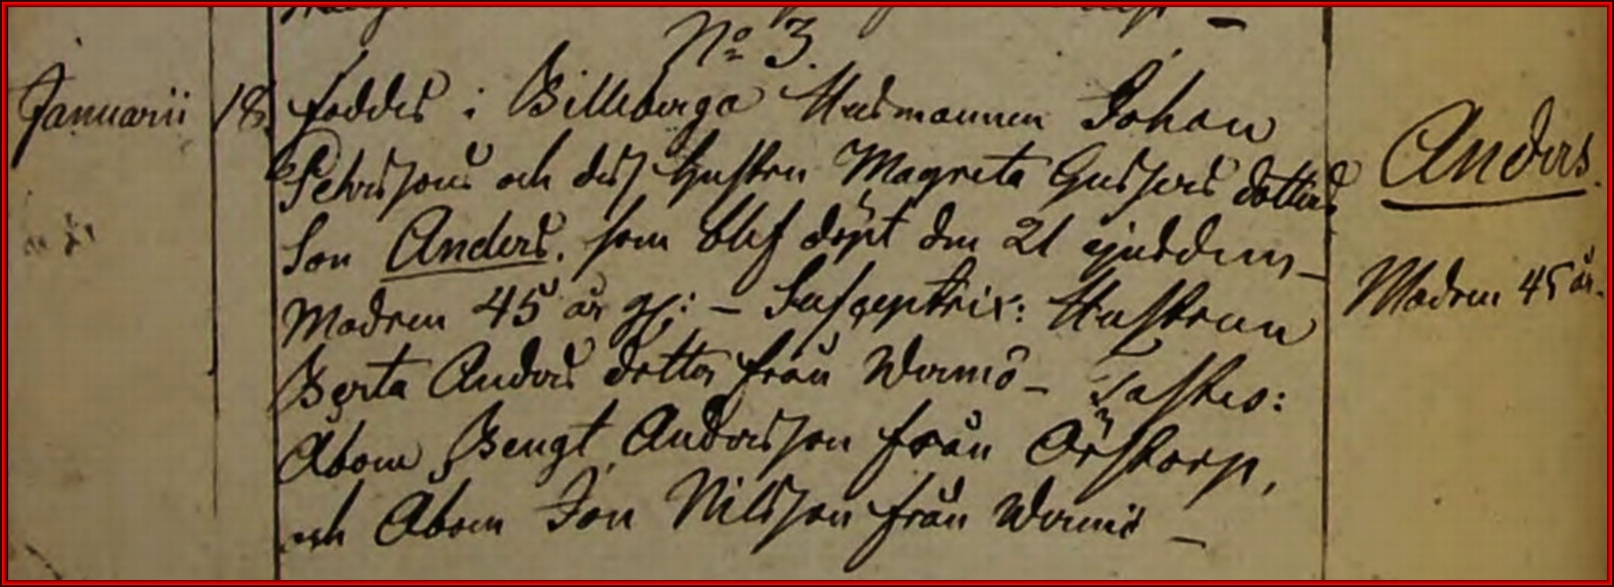 No 3.
Januarii 18. föddes i Billeberga Husmannen Johan
Pehrssons och dess hustru Magreta Gussers dotters
Son Anders. som blef döpt den 21 ejusdem_
Modren 45 år gl: – Susceptrix: Hustrun
Berta Anders dotter från Wermö – Testes:
Åbom Bengt Andersson från Örstorp,
och Åbom Jon Nilsson från Wermö –
Anders.
Modren 45 år.